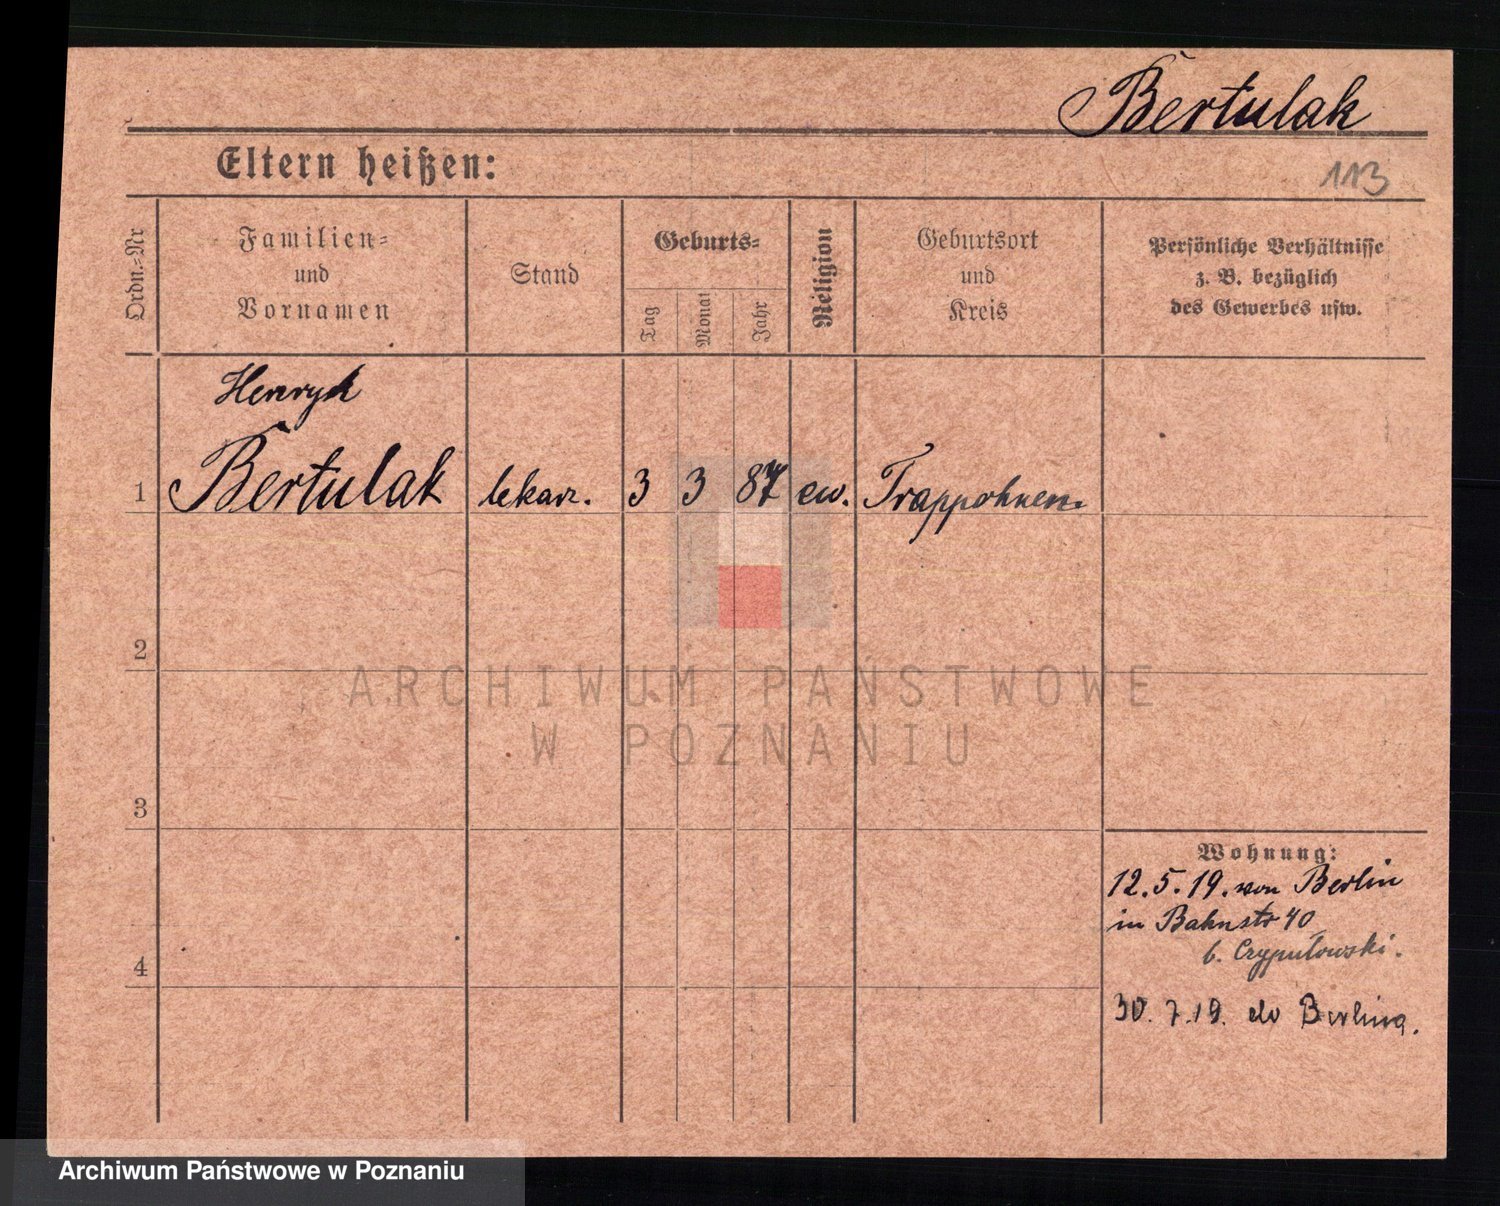 Bertulak
Eltern heißen:
113
Ordn.-Nr
Familien-
und
Vornamen
Stand
Geburts-
Tag
Monat
Jahr
Religion
Geburtsort
und
Kreis
Persönliche Verhältnisse
z. B. bezüglich
des Gewerbes usw.
Henryk
1 Bertulak lekarz. 3 3 87 ew. Trappohnen
2
ARCHIWUM PAŃSTWOWE
W POZNANIU
3
Wohnung:
12.5.19. von Berlin
in Bahnstr 40
b. Czyputowski.
4
30.7.19. do Berlina.
Archiwum Państwowe w Poznaniu